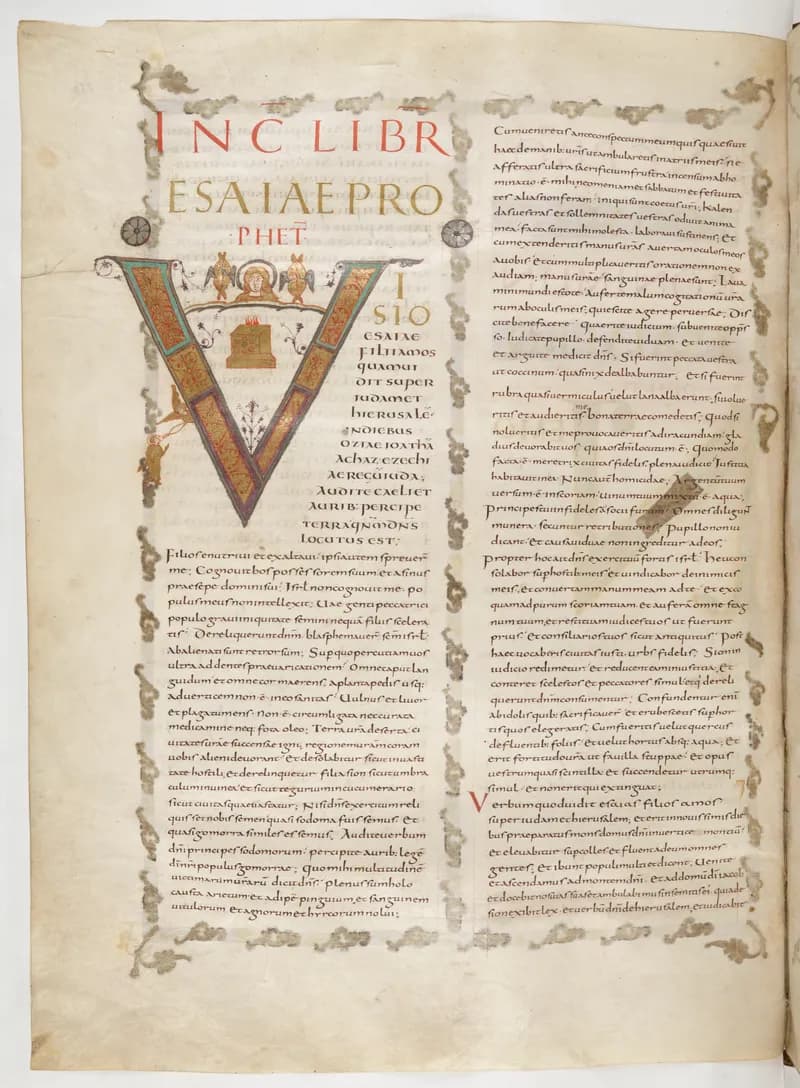 INC̄ LIBR̄
ESAIAE PRO
PHET̄
VI
SIO
ESAIAE
FILII AMOS
QUAM UI
DIT SUPER
IUDAM ET
HIERUSALĒ
INDIEBUS
OZIAE IOATHĀ
ACHAZ EZECHI
AE REGŪ IUDA;
AUDITE CAELI ET
AURIB: PERCIPE
TERRA QN̄M DN̄S
LOCUTUS EST;
Filios enutriui et exaltaui. ipsi autem spreuer̄
me; Cognouit bos possessorem suum. et asinus
praesepe domini sui; Isrl non cognouit me. po
pulus meus non intellexit; Uae genti peccatrici
populo graui iniquitate semini nequā filiis scelera
tis; Dereliquerunt dn̄m. blasphemauer̄ sc̄m isrl.
Abalienati sunt retrorsum; Sup quo percutiam uos
ultra addentes praeuaricationem; Omne caput lan
guidum et omne cor maerens. a planta pedis usq:
ad uerticem non ē in eo sanitas; Uulnus et liuor
et plaga tumens. non ē circumligata nec curata
medicamine neq: fota oleo; Terra ur̄a deserta. ci
uitates ur̄ae succensae igni. regionem ur̄am coram
uobis alieni deuorant; Et desolabitur sicut in uasti
tate hostili. et derelinquetur filia sion sicut umbra
culum in uinea. et sicut tegurium in cucumerario.
sicut ciuitas quae uastatur; Nisi dn̄s exercituum reli
quisset nobis semen quasi sodoma fuissemus. et
quasi gomorra similes essemus; Audite uerbum
dn̄i principes sodomorum. percipite aurib: legē
di n̄ri populus gomorrae; Quo mihi multitudinē
uictimarum ur̄arū dicit dn̄s. plenus sum holo
causta arietum et adipē pinguium. et sanguinem
uitulorum et agnorum et hyrcorum nolui;
Cum ueniretis ante conspectum meum quis quaesiuit
haec de manib: ur̄is ut ambularetis in atriis meis; Ne
afferatis ultra sacrificium frustra. incensum abho
minatio ē mihi. neomeniam et sabbatum et festiuita
tes alias non feram. iniqui sunt coetus ur̄i; Kalen
das uestras et sollemnitates uestras odiuit anima
mea. facta sunt mihi molesta. laboraui sustinens; Et
cum extenderitis manus ur̄as auertam oculos meos
a uobis. et cum multiplicaueritis orationem non ex
audiam. manus ur̄ae sanguinae plenae sunt; Laua
mini mundi estote. auferte malum cogitationū ur̄a
rum ab oculis meis. quiescite agere peruersae; Dis
cite bene facere. quaerite iudicium. subuenite oppr̄s
so. iudicate pupillo. defendite uiduam. et uenite
et arguite me dicit dn̄s; Si fuerint peccata uestra
ut coccinum. quasi nix dealbabuntur; Et si fuerint
rubra quasi uermiculus uelut lana alba erunt; Si uolue
ritis et audieritis me bona terrae comedetis; Quod si
nolueritis et me prouocaueritis ad iracundiam. gla
dius deuorabit uos quia os dn̄i locutum ē; Quomodo
facta ē meretrix ciuitas fidelis. plena iudicio; Iustitia
habitauit in ea. nunc autē homicidae; Argentum tuum
uersum ē in scoriam. uinum tuum mixtū ē aqua;
Principes tui infideles socii furum; Omnes diligunt
munera. secuntur retributiones; Pupillo non iu
dicant. et causa uiduae non ingreditur ad eos;
Propter hoc ait dn̄s exercituū fortis isrl; Heu con
solabor sup hostib: meis et uindicabor de inimicis
meis. et conuertam manum meam ad te. et exco
quam ad purum scoriam tuam. et auferā omne stag
num tuum. et restituā iudices tuos ut fuerunt
prius. et consiliarios tuos sicut antiquitus; Post
haec uocaberis ciuitas iusti. urbs fidelis; Sion in
iudicio redimetur. et reducent eam in iustitia. et
conteret scelestos et peccatores simul. et q̄ dereli
querunt dn̄m consumentur; Confundentur enī
ab idolis quib: sacrificauer̄ et erubescetis sup hor
tis quos elegeratis; Cum fueritis uelut quercus
defluentib: foliis et uelut hortus absq: aqua; Et
erit fortitudo ur̄a ut fauilla stuppae. et opus
uestrum quasi scintilla. et succendetur utrumq:
simul. et non erit qui extinguat;
Verbum quod uidit esaias filius amos
super iudam et hierusalem; et erit in nouissimis die
bus praeparatus mons domus dn̄i in uertice montiū
et eleuabitur sup colles et fluent ad eum omnes
gentes; Et ibunt populi multi et dicent; Uenite
et ascendamus ad montem dn̄i. et ad domū di iacob
et docebit nos uias suas et ambulabimus in semitis ei. quia de
sion exibit lex. et uerbū dn̄i de hierusalem. et iudicabit